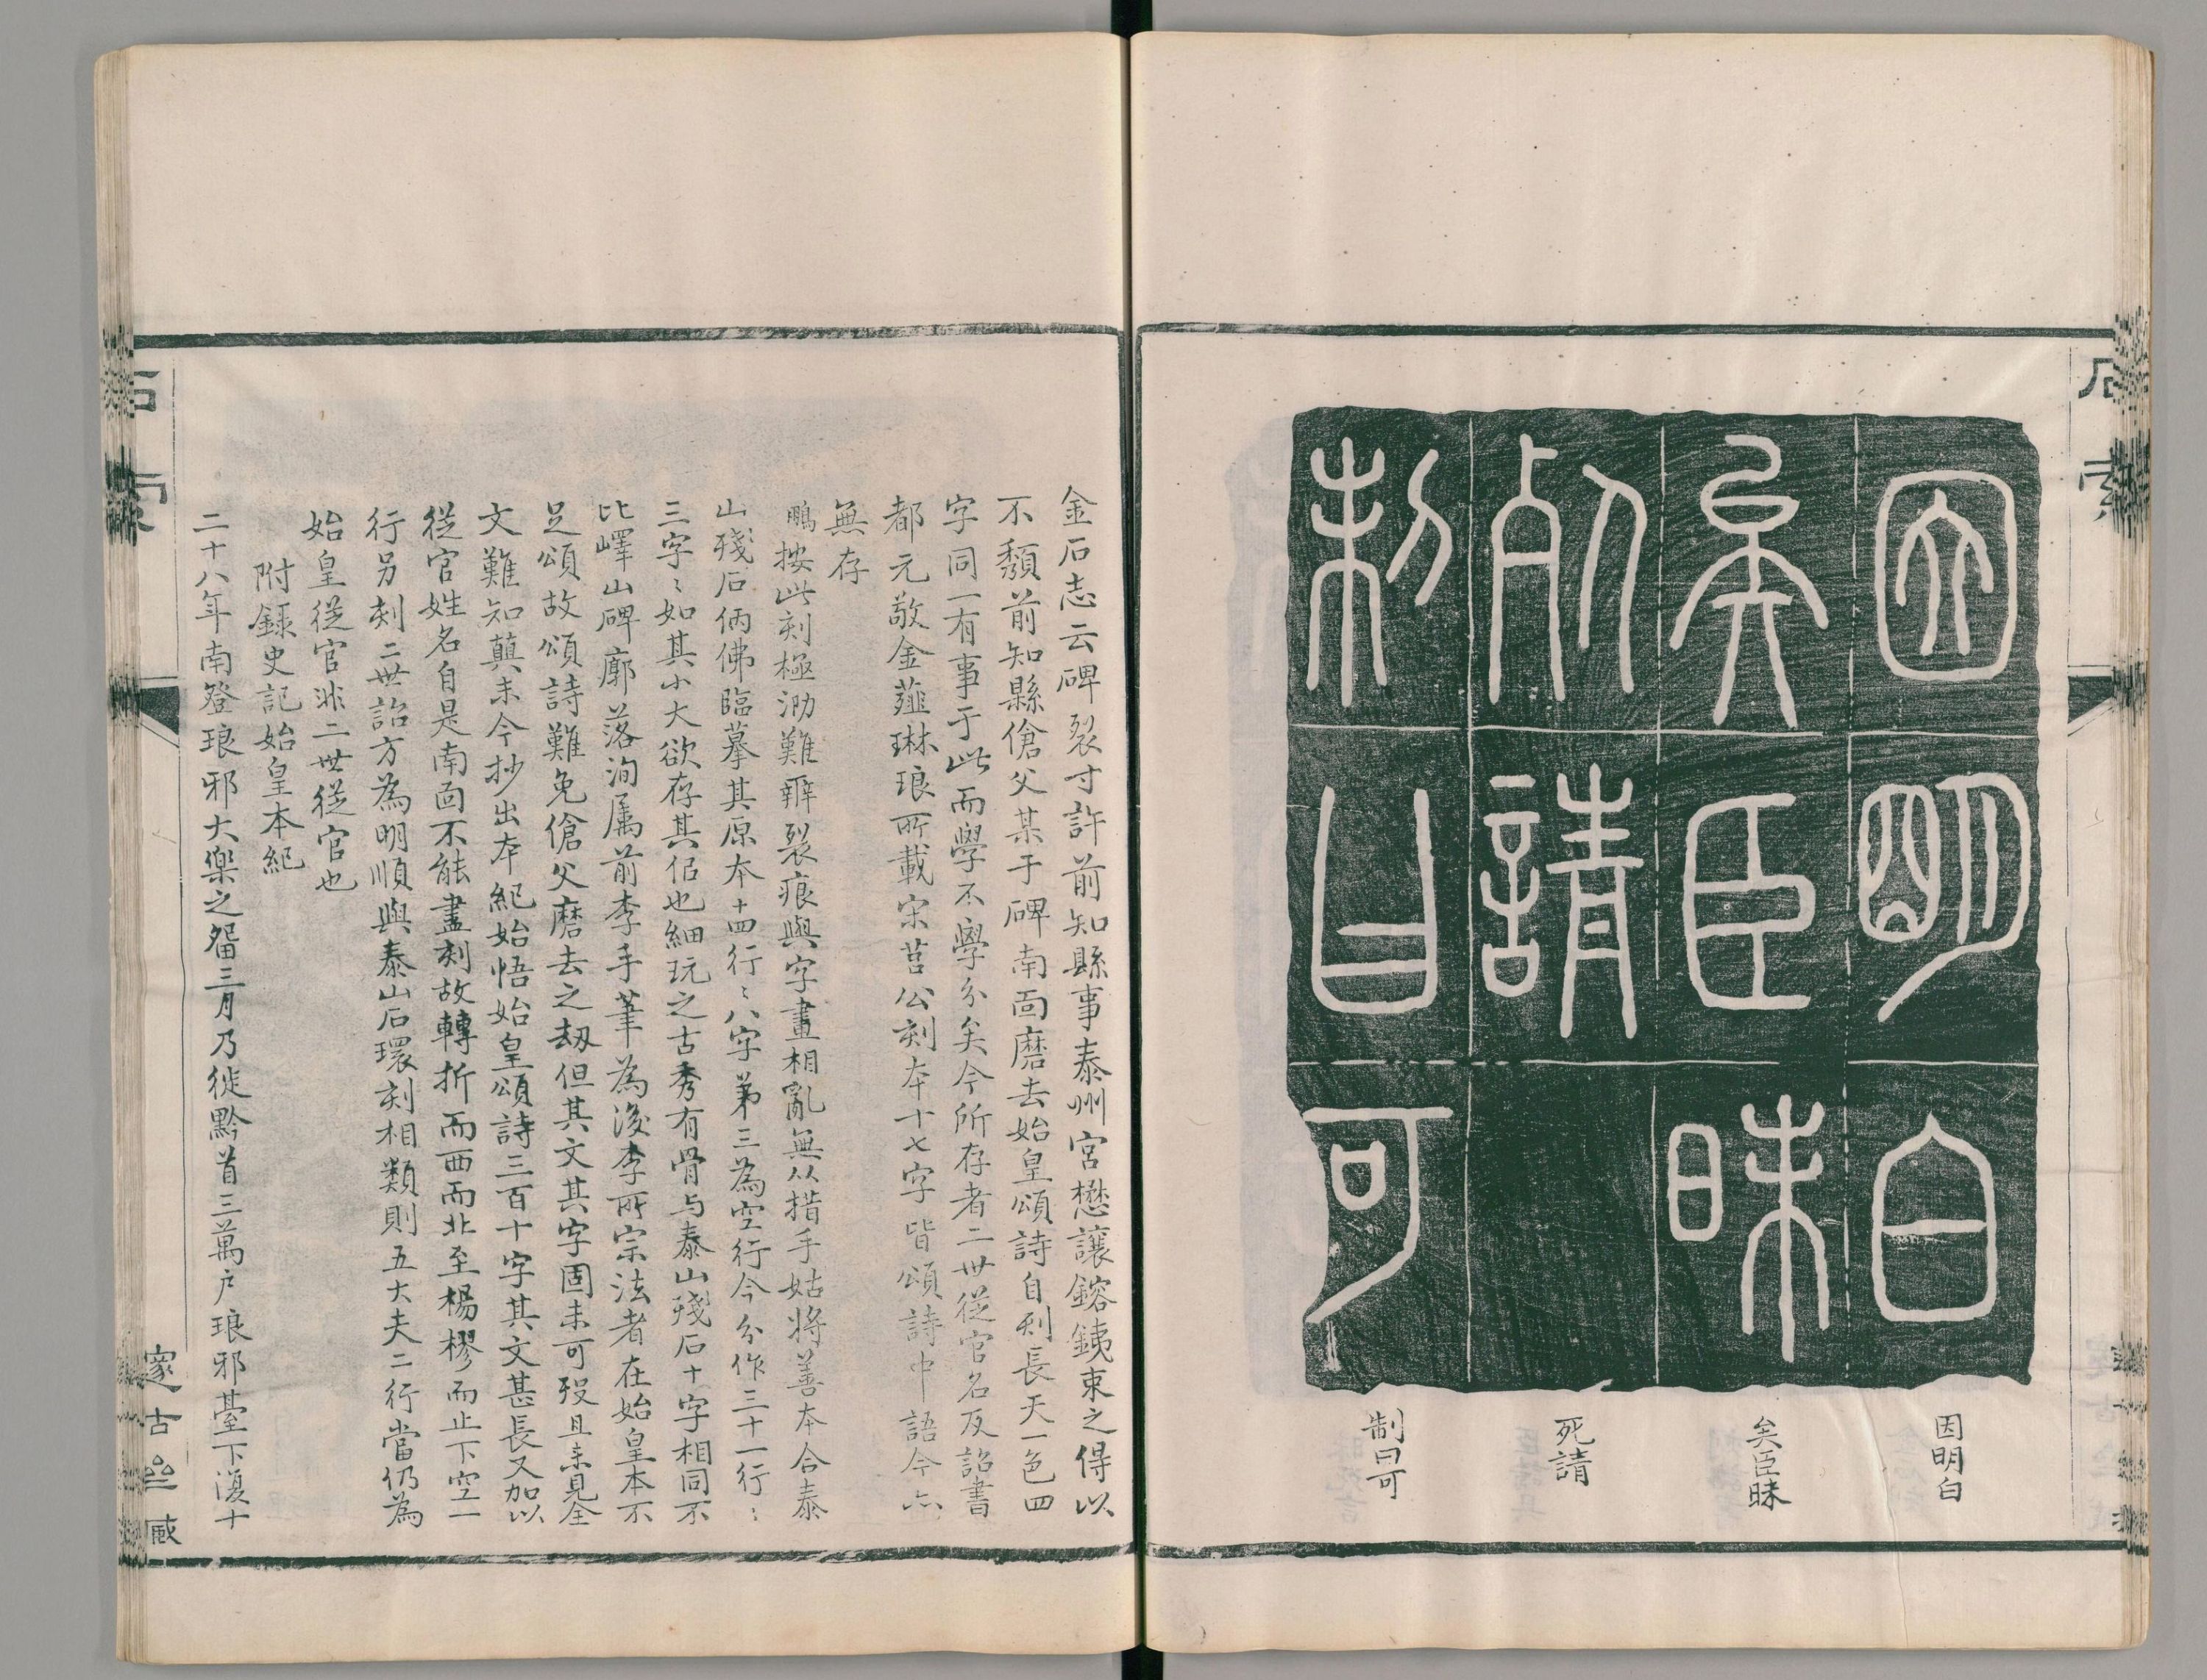 因明白
矣臣昧
死請
制曰可
因明白
矣臣昧
死請
制曰可
金石志云碑裂寸許前知縣事泰州宮懋讓鎔銕束之得以
不頽前知縣傖父某于碑南面磨去始皇頌詩自刻長天一色四
字同一有事于此而學不學分矣今所存者二世從官名及詔書
都元敬金薤琳琅所載宋莒公刻本十七字皆頌詩中語今亦
無存
鵬按此刻極泐難辨裂痕與字畫相亂無从措手姑將善本合泰
山殘石仿佛臨摹其原本十四行〻八字弟三為空行今分作三十一行〻
三字〻如其小大欲存其佀也細玩之古秀有骨与泰山殘石十字相同不
比嶧山碑廓落洵属前李手筆為後李所宗法者在始皇本不
足頌故頌詩難免傖父磨去之刼但其文其字固未可殁且未見全
文難知蘋未今抄出本紀始悟始皇頌詩三百十字其文甚長又加以
從官姓名自是南面不能盡刻故轉折而西而北至楊樛而止下空一
行另刻二世詔方為明順與泰山石環刻相類則五大夫二行當仍為
始皇從官非二世從官也
附錄史記始皇本紀
二十八年南登琅邪大樂之畱三月乃徙黔首三萬戶琅邪臺下復十
石索
邃古齋藏
石索